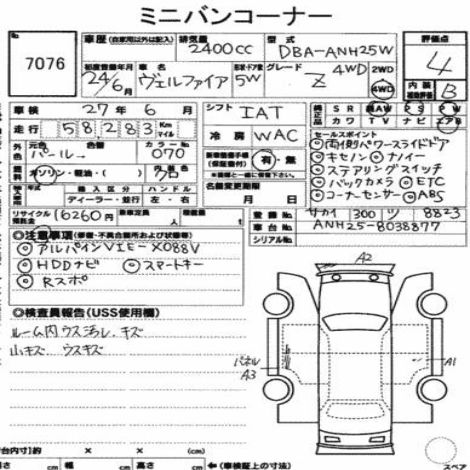 ミニバンコーナー
No. 7076
車歴 (自家用以外は記入) 排気量 2400cc 型式 DBA-ANH25W 評価点 4
初度登録年月 24/6月 ヴェルファイア 5W グレード Z 4WD 2WD 4WD 内装 B
車検 27年6月 シフト IAT SR AW PS PW
走行 58283 Km マイル 冷房 WAC カワ TV ナビ エアB
外色 パール 色番 カラーNo. 070 有・無 セールスポイント
内色 クロ ガソリン・軽油・( ) 両側パワースライドドア
輸入区分 ハンドル キセノン ナノイー
ディーラー・並行 左・右 名義変更期限 ステアリングスイッチ
リサイクル 16260円 乗車定員 人 月 日 バックカメラ ETC
コーナーセンサー ABS
登録No. サカイ 300 ツ 8823
注意事項 (修復・不具合箇所および状態等) 車台No. ANH25-8038877
アルパインVIE-X088V シリアルNo.
HDDナビ スマートキー
Rスポ
検査員報告(USS使用欄)
ルーム内ウス汚レ キズ
小キズ ウスキズ
A2
パネル A3
A1
cm 幅 cm 高さ cm ←(車検証上の寸法)
スペア